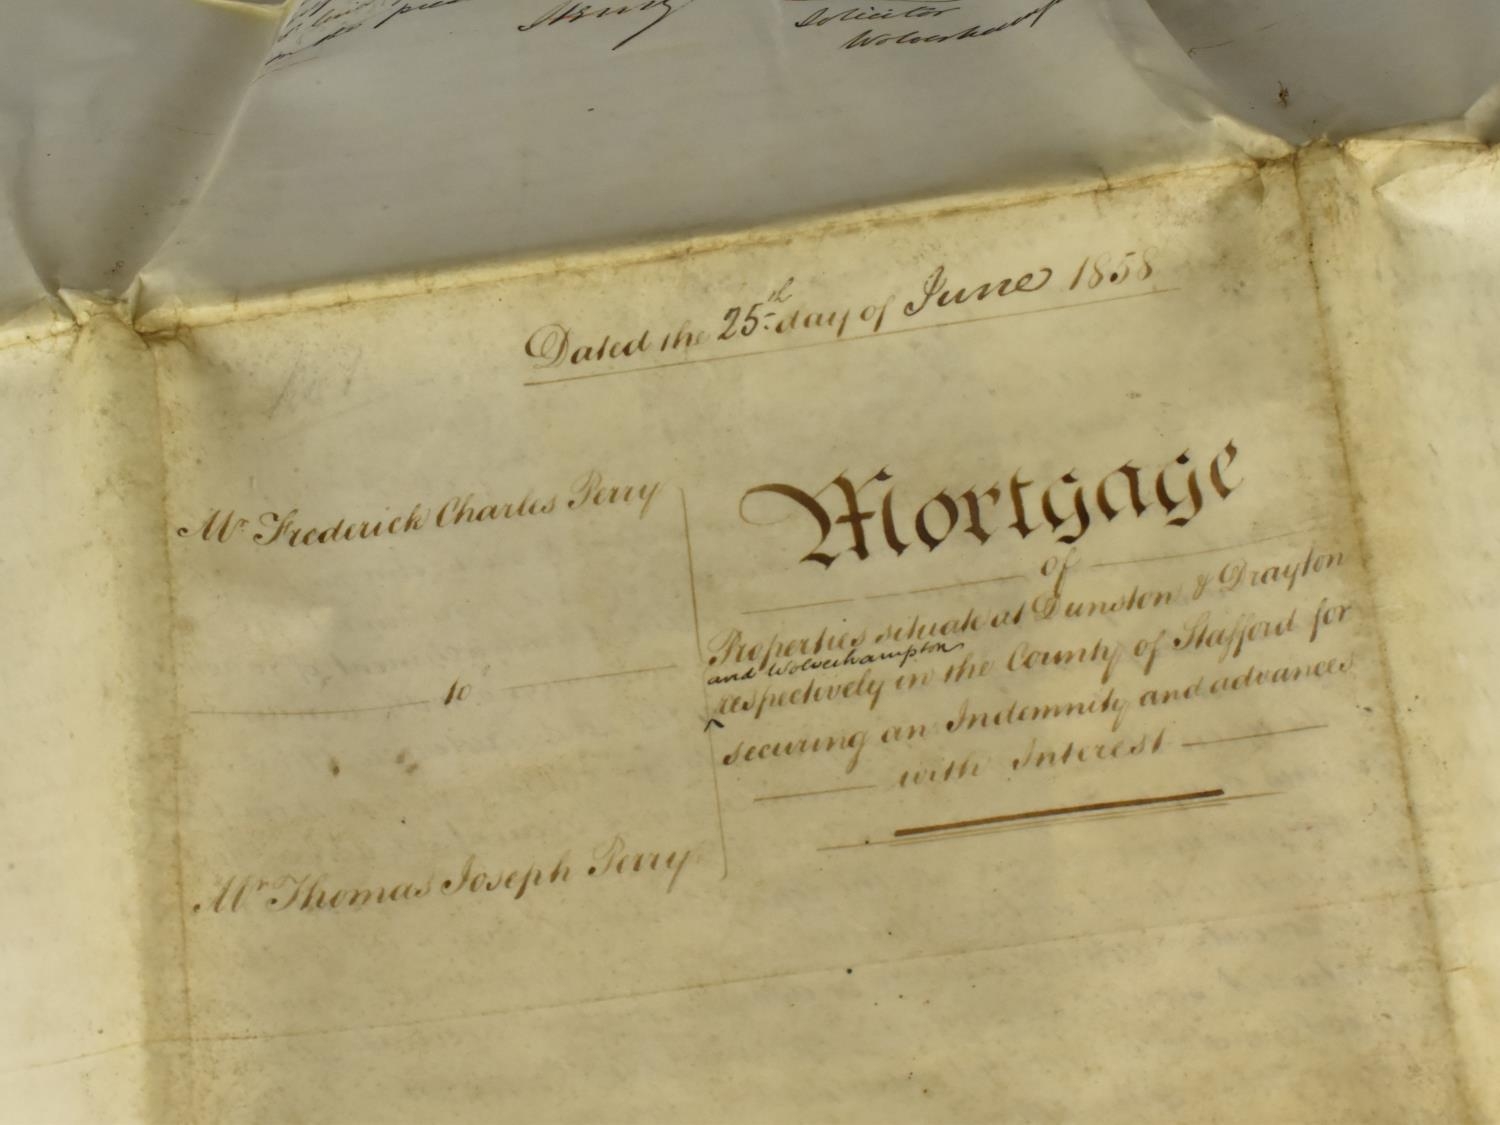 Solicitor
Dated the 25th day of June 1858
Mr. Frederick Charles Perry
to
Mr Thomas Joseph Perry
Mortgage
of
Properties situate at Dunston & Drayton
and Wolverhampton
respectively in the County of Stafford for
securing an Indemnity and advances
with Interest